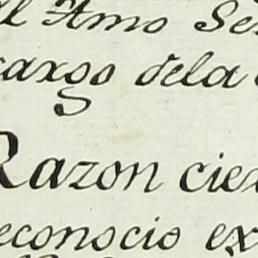 l Amo Se
cargo dela
Razon cie
econocio ex